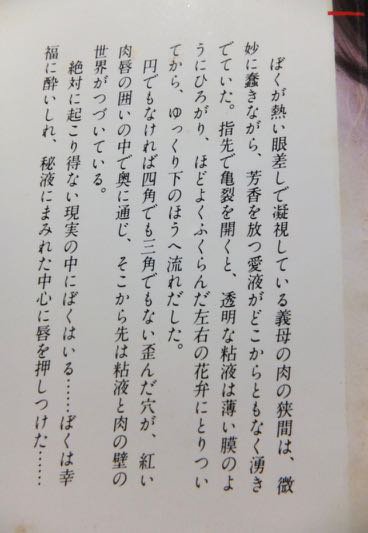 ぼくが熱い眼差しで凝視している義母の肉の狭間は、微
妙に蠢きながら、芳香を放つ愛液がどこからともなく湧き
でていた。指先で亀裂を開くと、透明な粘液は薄い膜のよ
うにひろがり、ほどよくふくらんだ左右の花弁にとりつい
てから、ゆっくり下のほうへ流れだした。
円でもなければ四角でも三角でもない歪んだ穴が、紅い
肉唇の囲いの中で奥に通じ、そこから先は粘液と肉の壁の
世界がつづいている。
絶対に起こり得ない現実の中にぼくはいる……ぼくは幸
福に酔いしれ、秘液にまみれた中心に唇を押しつけた……